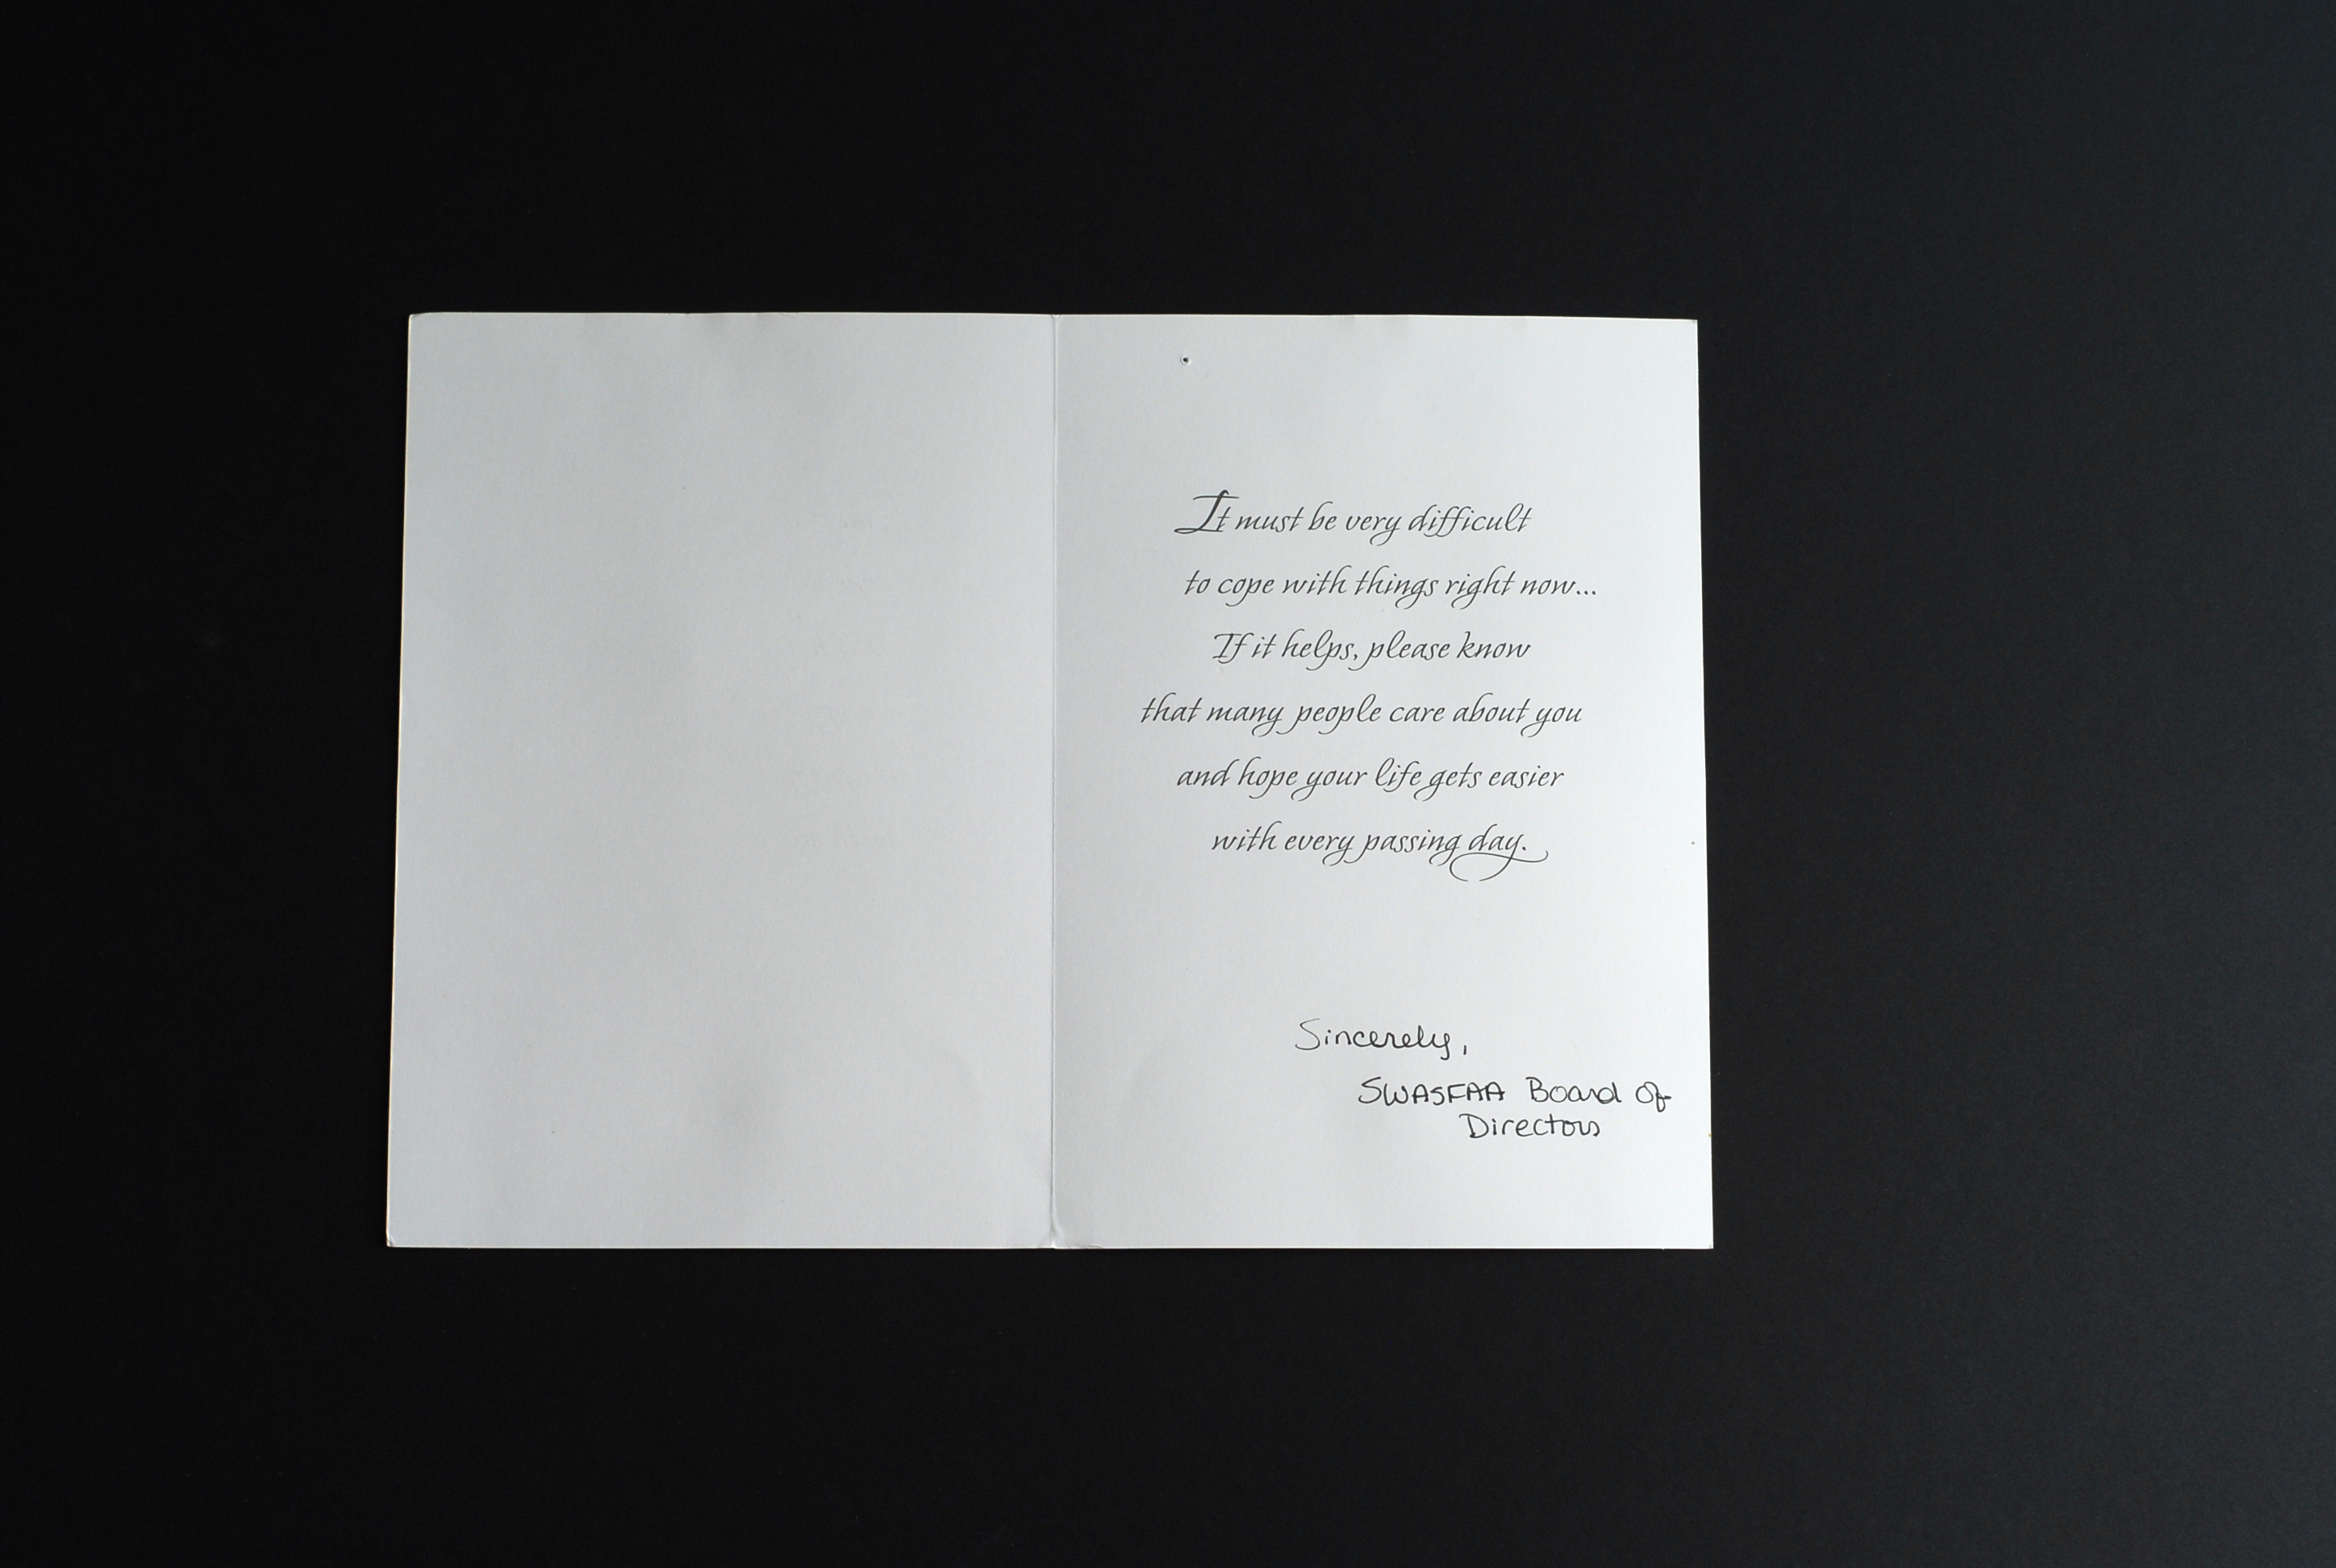 It must be very difficult
to cope with things right now...
If it helps, please know
that many people care about you
and hope your life gets easier
with every passing day.
Sincerely,
SWASFAA Board of
Directors